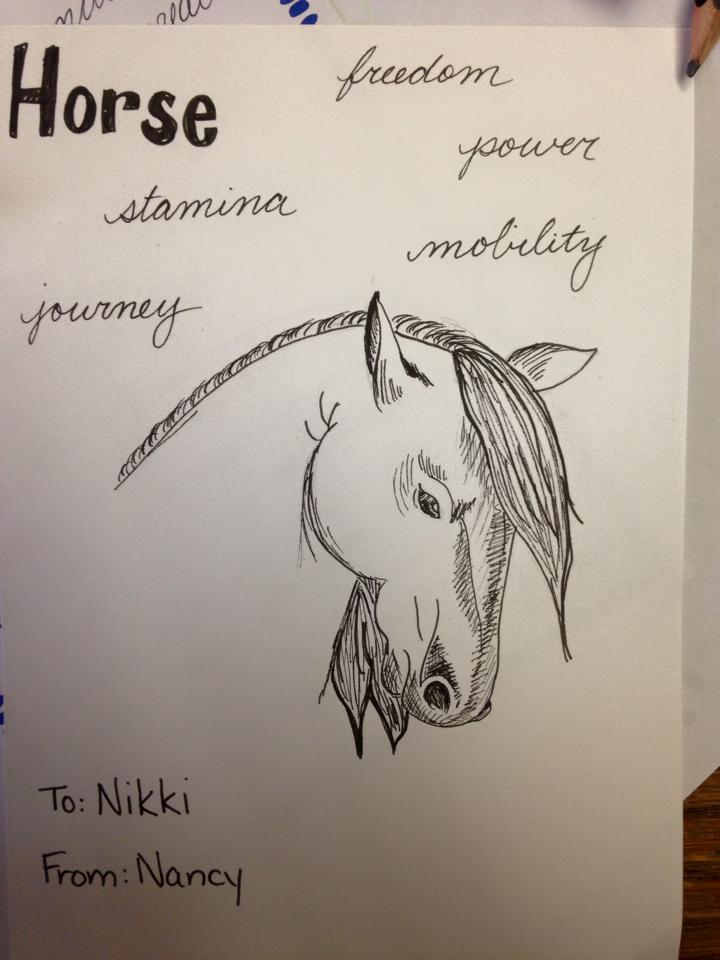 Horse
freedom
power
stamina
mobility
journey
To: Nikki
From: Nancy